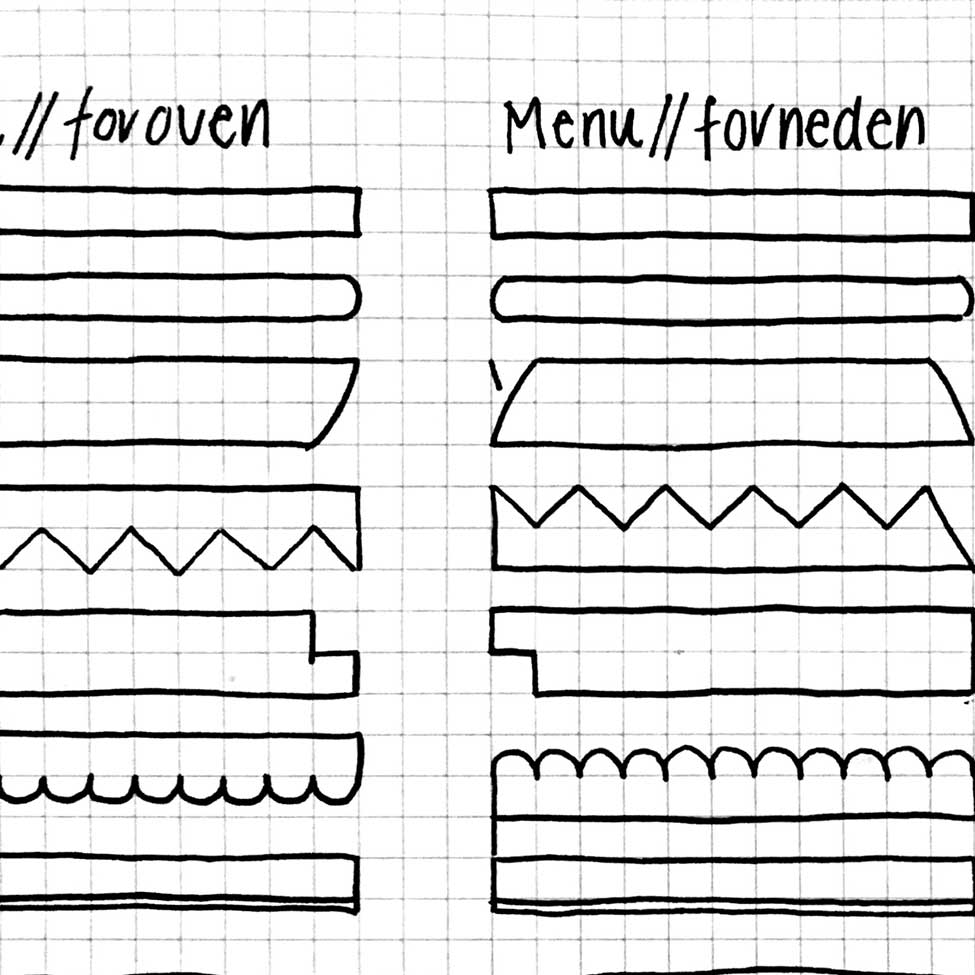 // foroven
Menu // forneden